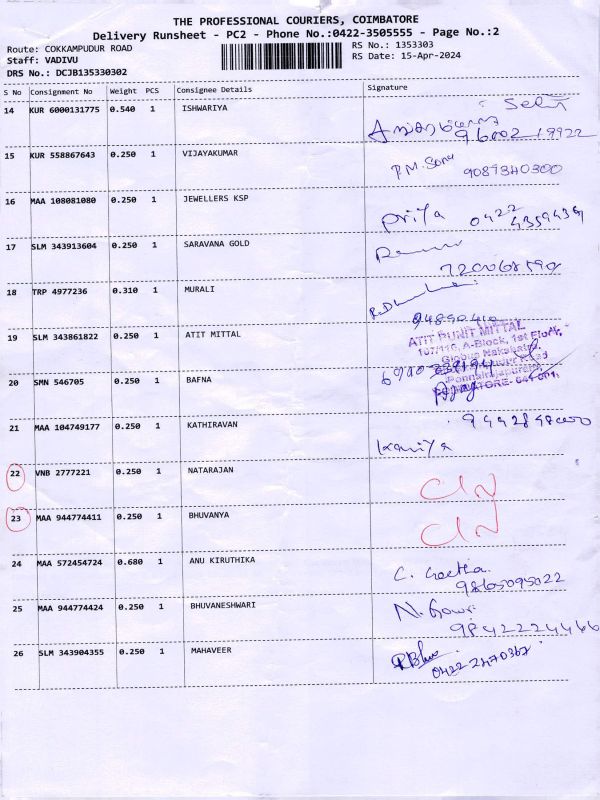 THE PROFESSIONAL COURIERS, COIMBATORE
Delivery Runsheet - PC2 - Phone No.:0422-3505555 - Page No.:2
Route: COKKAMPUDUR ROAD
Staff: VADIVU
DRS No.: DCJB135330302
RS No.: 1353303
RS Date: 15-Apr-2024
S No Consignment No Weight PCS Consignee Details Signature
14 KUR 6000131775 0.540 1 ISHWARIYA
15 KUR 558867643 0.250 1 VIJAYAKUMAR
9089340300
16 MAA 108081080 0.250 1 JEWELLERS KSP
Priya 0422
4359439
17 SLM 343913604 0.250 1 SARAVANA GOLD
18 TRP 4977236 0.310 1 MURALI
19 SLM 343861822 0.250 1 ATIT MITTAL
ATIT PUNIT MITTAL
107/116, A-Block, 1st Floor,
20 SMN 546705 0.250 1 BAFNA
21 MAA 104749177 0.250 1 KATHIRAVAN
Kaniya
22 VNB 2777221 0.250 1 NATARAJAN
CIN
23 MAA 944774411 0.250 1 BHUVANYA
CIN
24 MAA 572454724 0.680 1 ANU KIRUTHIKA
C. Geetha.
9865095022
25 MAA 944774424 0.250 1 BHUVANESHWARI
N. Gowri
9842224466
26 SLM 343904355 0.250 1 MAHAVEER
0422 2470367